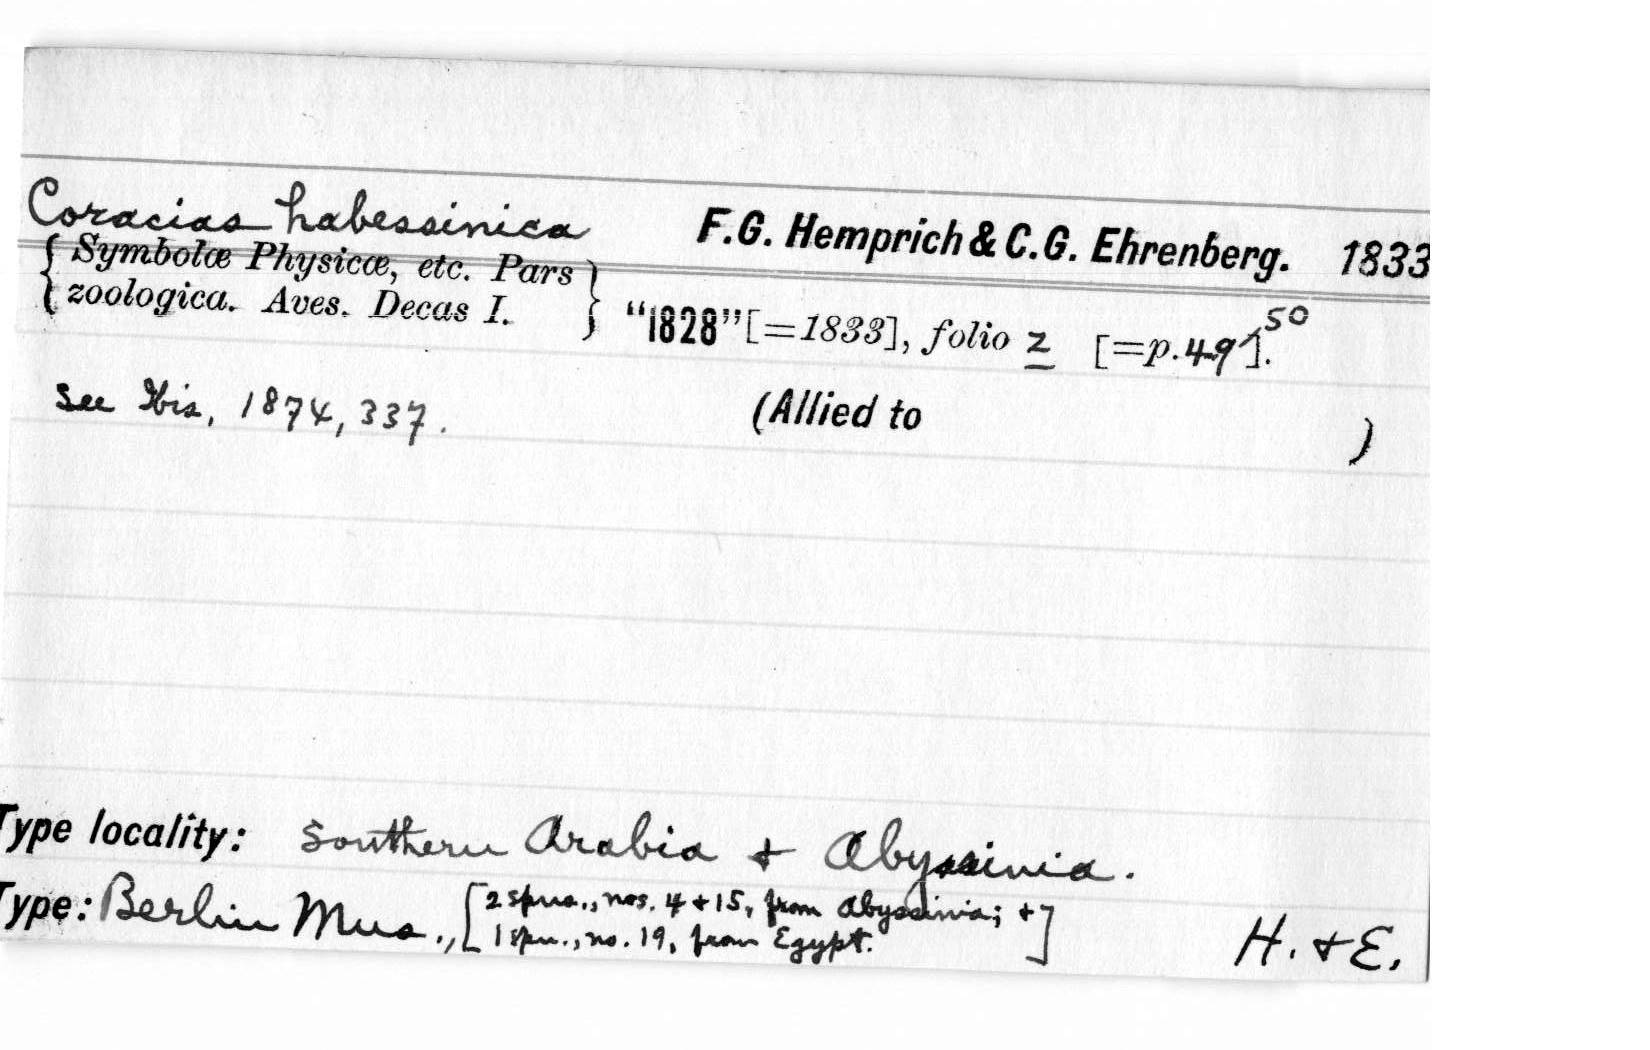 Coracias habessinica F.G. Hemprich & C.G. Ehrenberg. 1833
{ Symbolæ Physicæ, etc. Pars
zoologica. Aves. Decas I. } "1828" [=1833], folio z [=p.49 50].
See Ibis, 1874, 337. (Allied to )
Type locality: Southern Arabia & Abyssinia.
Type: Berlin Mus., [2 spns., nos. 4 & 15, from Abyssinia; &
1 spn., no. 19, from Egypt.] H. & E.